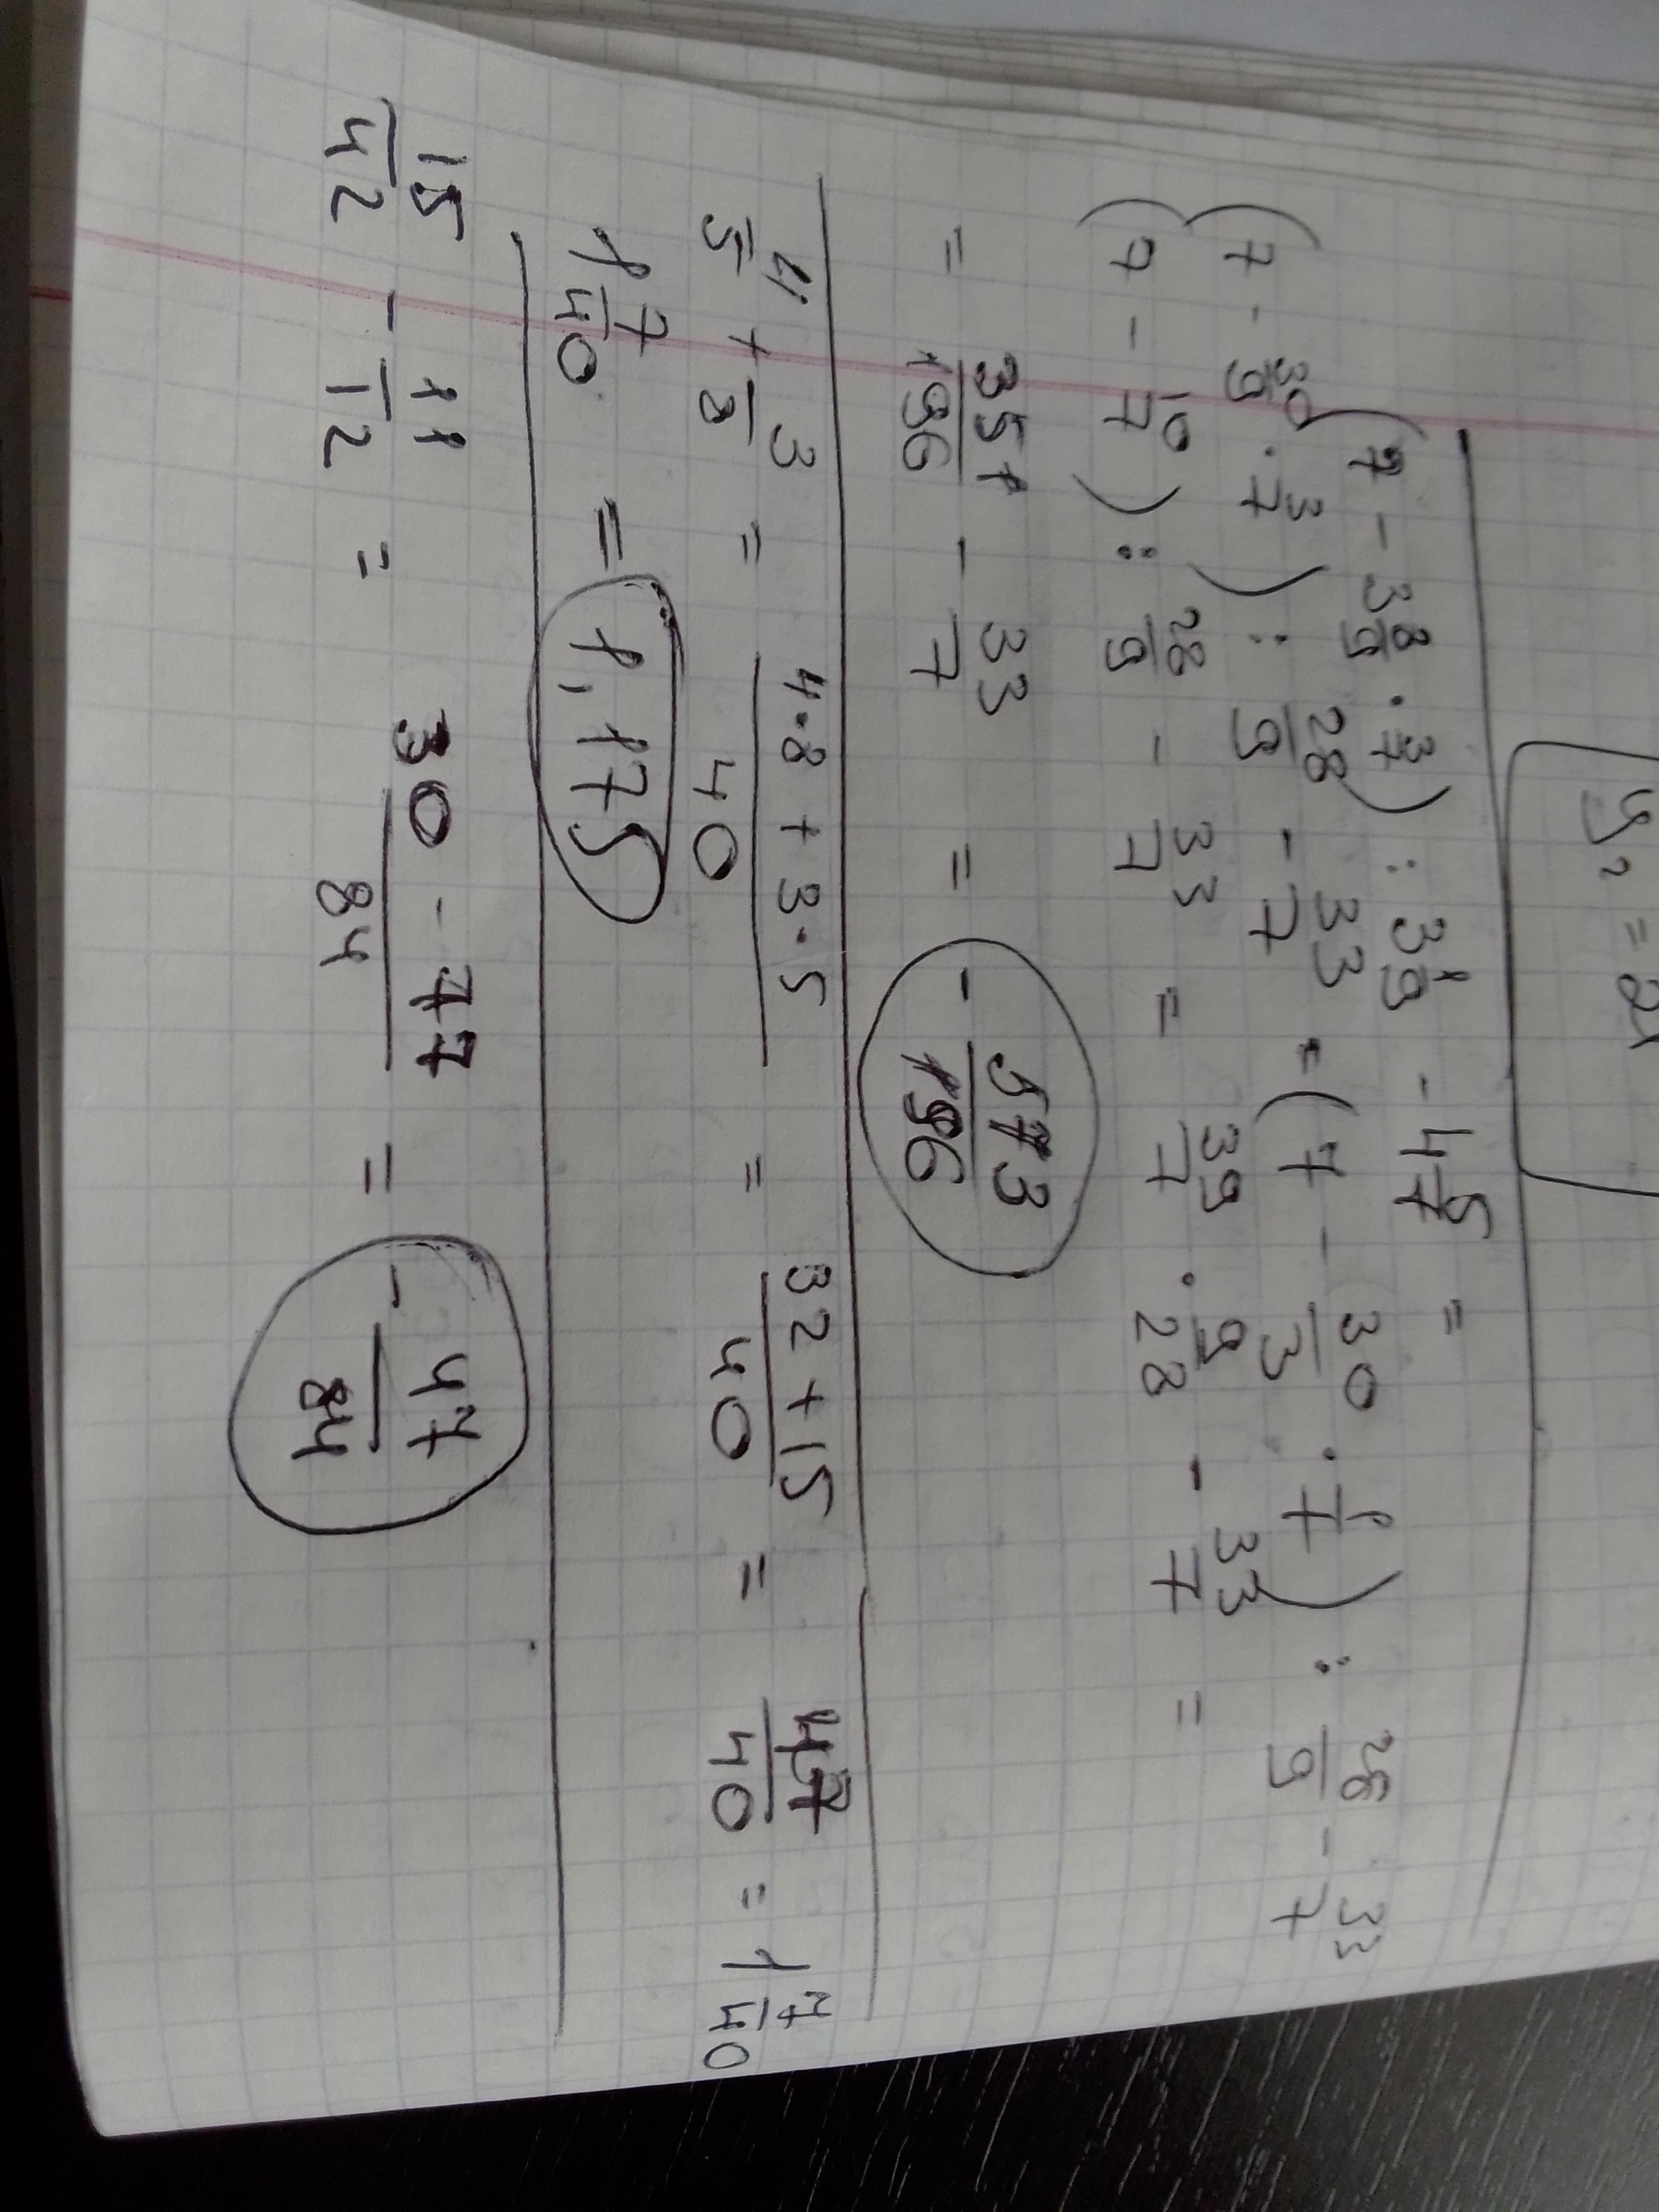 y₂ = 2
(7 - 3 8/9 · 3/7) : 3 1/9 - 4 5/7 =
(7 - 30/9 · 3/7) : 28/9 - 33/7 = (7 - 30/3 · 1/7) : 28/9 - 33/7
(7 - 10/7) : 28/9 - 33/7 = 39/7 · 9/28 - 33/7 =
= 351/196 - 33/7 = - 573/196
4/5 + 3/8 = (4·8 + 3·5)/40 = (32 + 15)/40 = 47/40 = 1 7/40
1 7/40 = 1,175
15/42 - 11/12 = (30 - 77)/84 = - 47/84